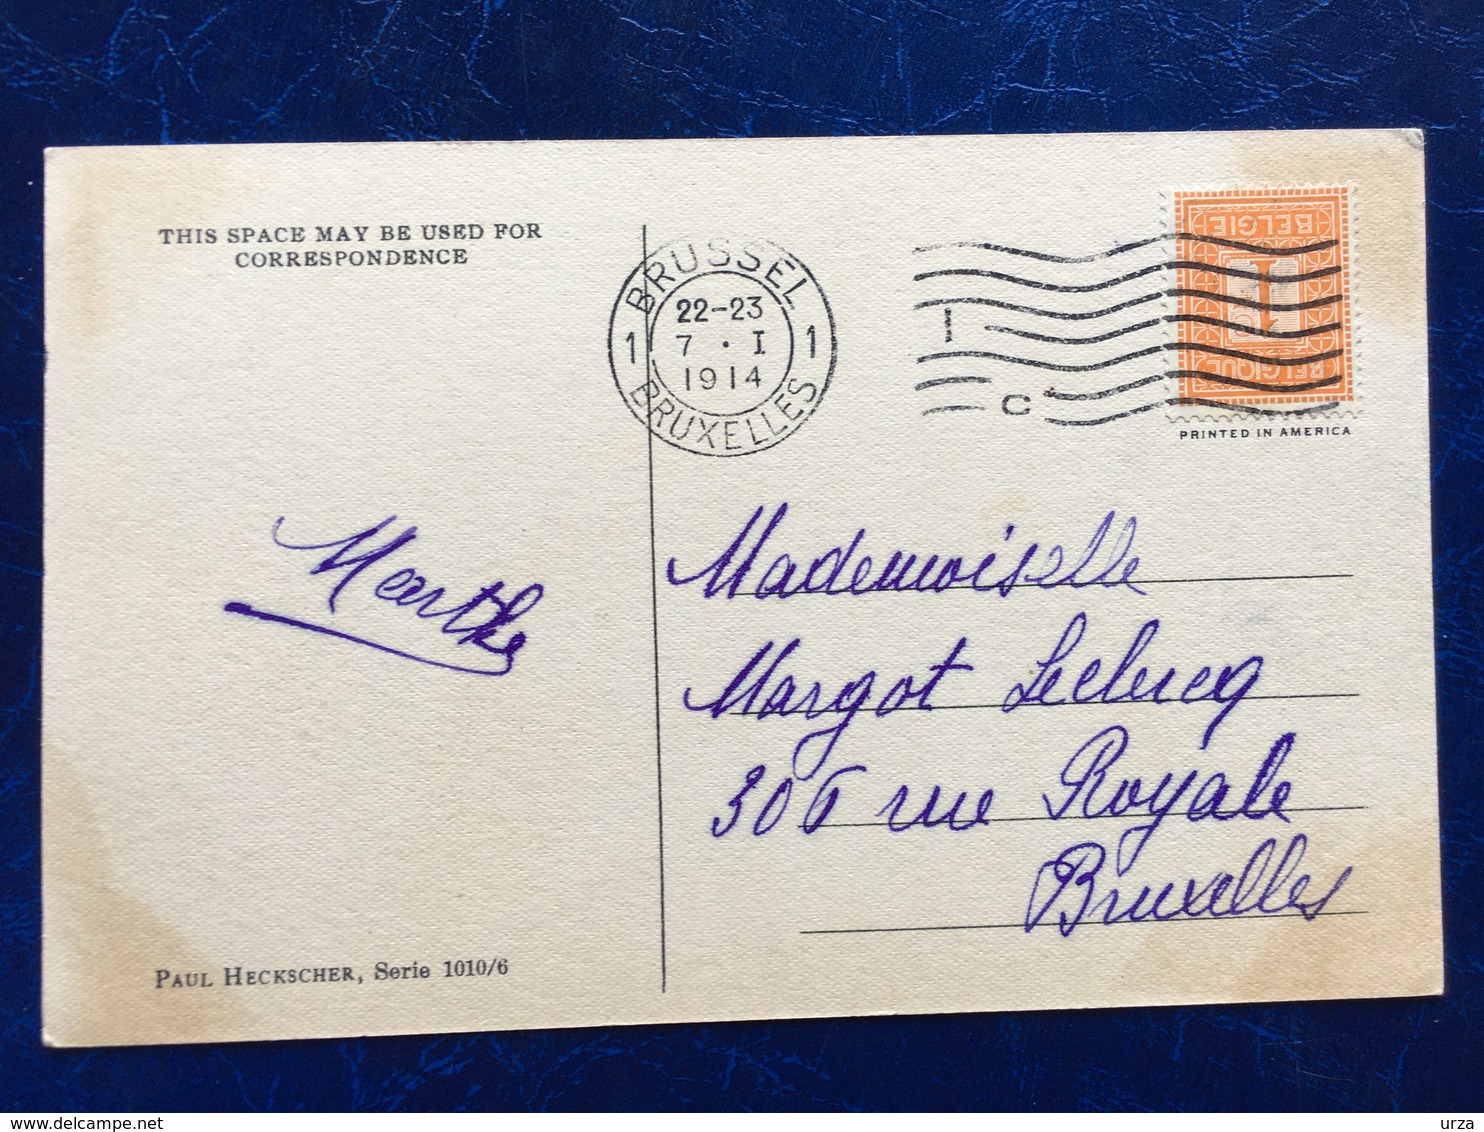 THIS SPACE MAY BE USED FOR
CORRESPONDENCE
BRUSSEL
22-23
1 7 · I 1
1914
BRUXELLES
I
C
BELGIE
1
C
BELGIQUE
PRINTED IN AMERICA
Marthe
Mademoiselle
Margot Leclercq
306 rue Royale
Bruxelles
PAUL HECKSCHER, Serie 1010/6
urza